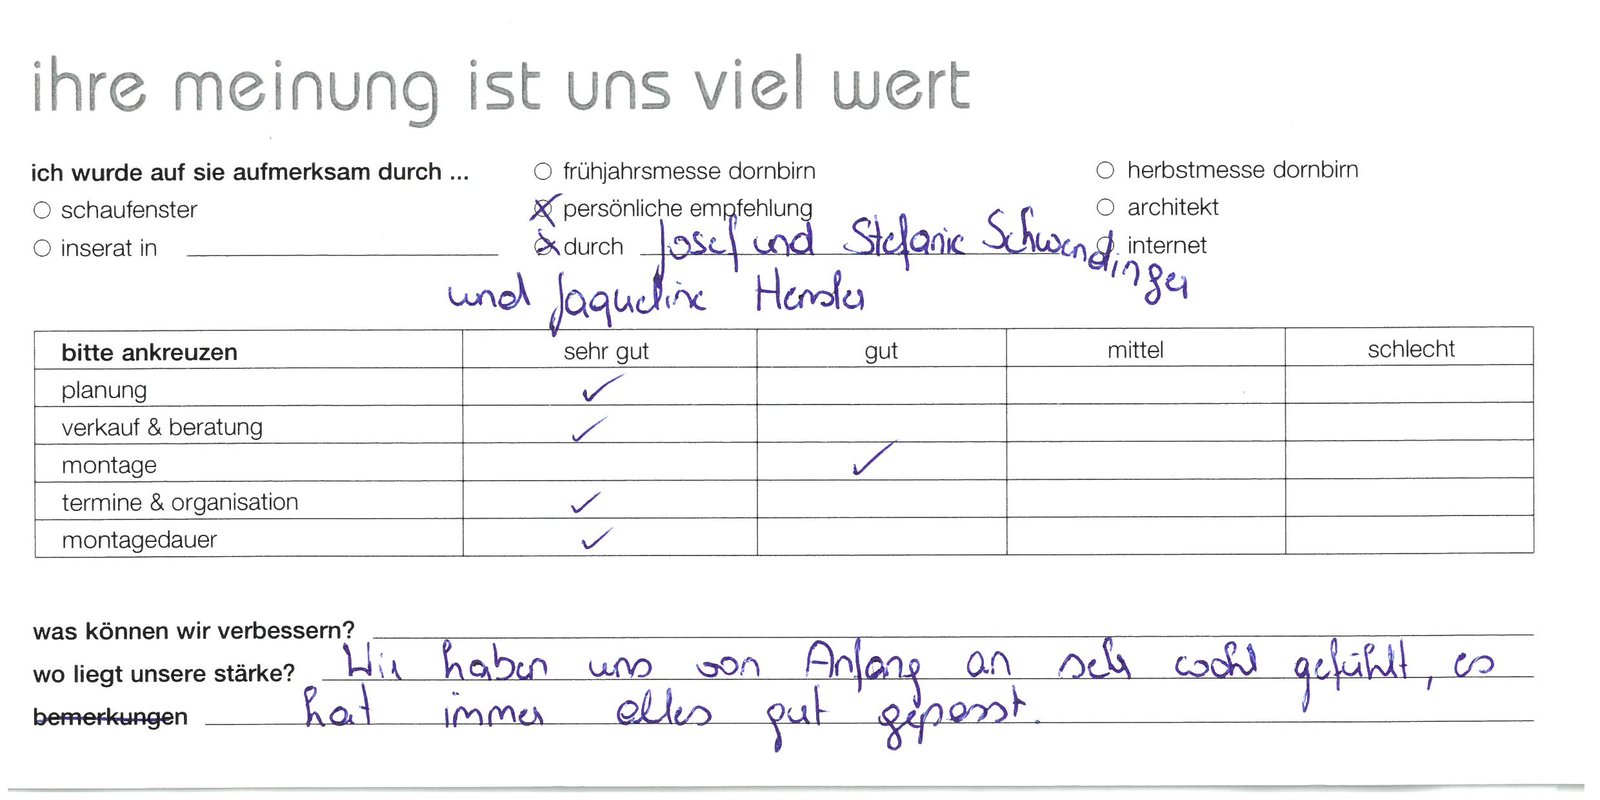 ihre meinung ist uns viel wert
ich wurde auf sie aufmerksam durch ... ○ frühjahrsmesse dornbirn ○ herbstmesse dornbirn
○ schaufenster ☒ persönliche empfehlung ○ architekt
○ inserat in ☒ durch Josef und Stefanie Schwendinger ○ internet
und Jaqueline
bitte ankreuzen sehr gut gut mittel schlecht
planung ✓
verkauf & beratung ✓
montage ✓
termine & organisation ✓
montagedauer ✓
was können wir verbessern?
wo liegt unsere stärke? Wir haben uns von Anfang an sehr wohl gefühlt, es
bemerkungen hat immer alles gut gepasst.